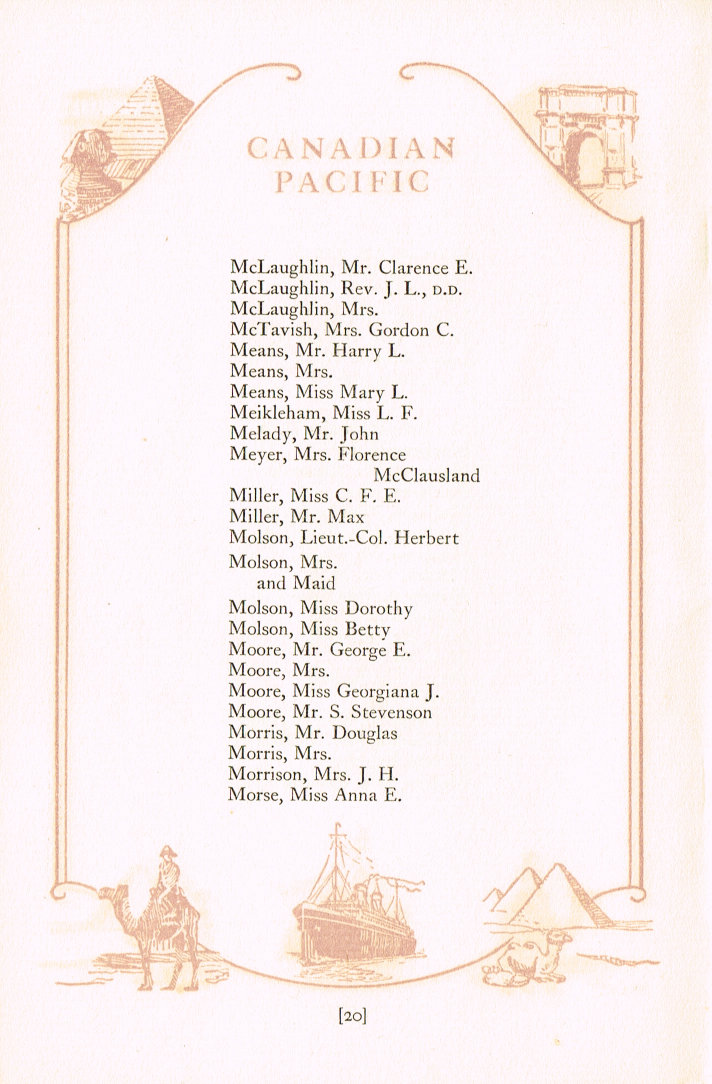 CANADIAN
PACIFIC
McLaughlin, Mr. Clarence E.
McLaughlin, Rev. J. L., D.D.
McLaughlin, Mrs.
McTavish, Mrs. Gordon C.
Means, Mr. Harry L.
Means, Mrs.
Means, Miss Mary L.
Meikleham, Miss L. F.
Melady, Mr. John
Meyer, Mrs. Florence
McClausland
Miller, Miss C. F. E.
Miller, Mr. Max
Molson, Lieut.-Col. Herbert
Molson, Mrs.
and Maid
Molson, Miss Dorothy
Molson, Miss Betty
Moore, Mr. George E.
Moore, Mrs.
Moore, Miss Georgiana J.
Moore, Mr. S. Stevenson
Morris, Mr. Douglas
Morris, Mrs.
Morrison, Mrs. J. H.
Morse, Miss Anna E.
[20]